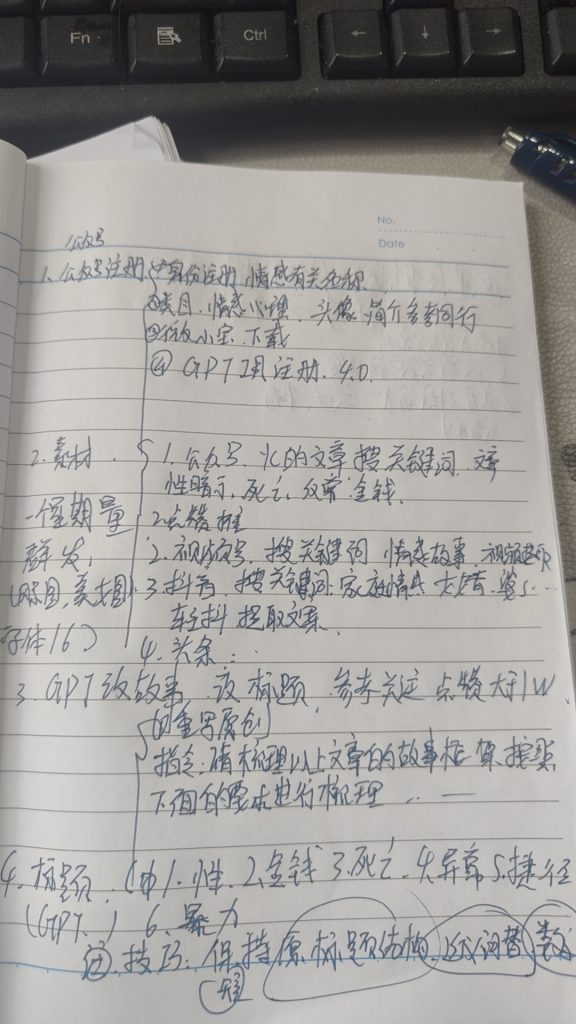 Fn
Ctrl
← ↓ →
No.
Date
公众号
1. 公众号注册 ①身份注册 情感有关名称
②类目. 情感心理. 头像 简介参考同行
③ 小宝 下载
④ GPT 注册. 4.0.
2. 素材. 1. 公众号. 的文章 搜关键词
性暗示, 死亡, 金钱.
一个星期量 2. 点赞
群发, 2. 视频号, 搜关键词 情感故事
美女图) 3. 抖音, 搜关键词 家庭情
字体16) 轻抖 提取文案.
4. 头条..
3. GPT改故事 改标题, 参考关注 点赞大于1W
的重写原创
指令: 请梳理以上文章的故事框架 按照
下面的要求进行梳理 .. —
4. 标题. 1. 性. 2. 金钱 3. 死亡. 4. 异常 5. 捷径
(GPT.) 6. 暴力
技巧: 保持原标题结构 词替